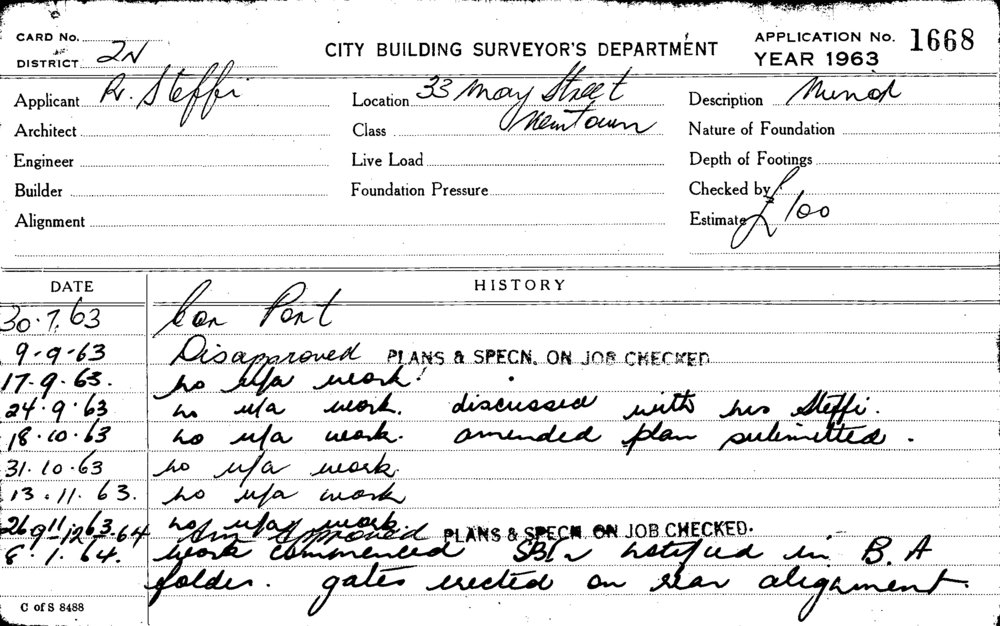 CARD No.
DISTRICT 2N
CITY BUILDING SURVEYOR'S DEPARTMENT
APPLICATION No. 1668
YEAR 1963
Applicant R. Steffi
Location 33 May Street
Newtown
Description Minor
Architect
Class
Nature of Foundation
Engineer
Live Load
Depth of Footings
Builder
Foundation Pressure
Checked by
Alignment
Estimate £100
DATE HISTORY
30.7.63 Car Port
9-9-63 Disapproved PLANS & SPECN. ON JOB CHECKED
17-9-63. no u/a work.
24.9.63 no u/a work. discussed with Mrs Steffi.
18.10.63 no u/a work. amended plan submitted.
31.10.63 no u/a work.
13.11.63. no u/a work
26.11.63. no u/a work.
Approved PLANS & SPECN ON JOB CHECKED.
8.1.64. work commenced notified in B.A
folder. gates erected on rear alignment.
C of S 8488